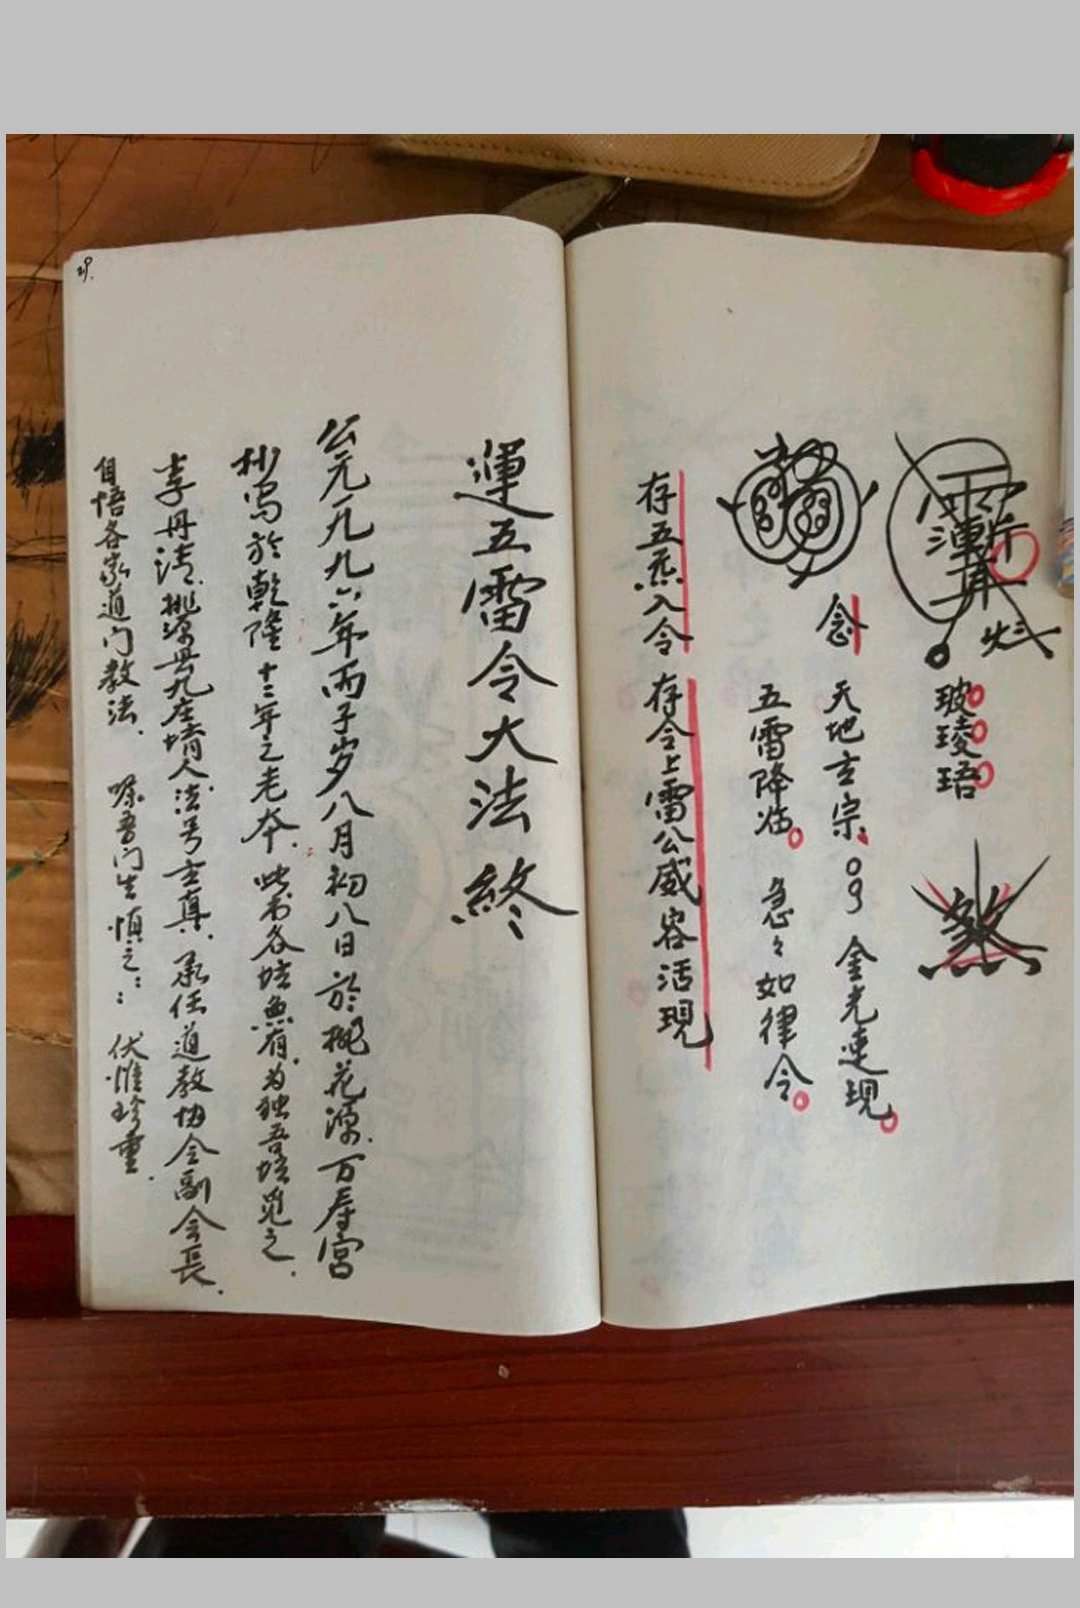 玻琼琣
煞
念 天地玄宗 金光速現
五雷降临 急々如律令
存五炁入令 存令上雷公威容活現
運五雷令大法終
公元一九九六年丙子岁八月初八日於桃花源万寿宫
抄写於乾隆十二年之老本 此书各坛無有 为独吾坛览之
李丹清 桃源县九庄墙人 法号玄真 承任道教协会副会長
自悟各家道门教法 嘱吾门生慎之 伏惟珍重
29